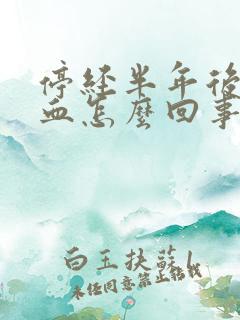 停经半年后
血怎麼回事
白玉扶蘇
未经同意禁止转载